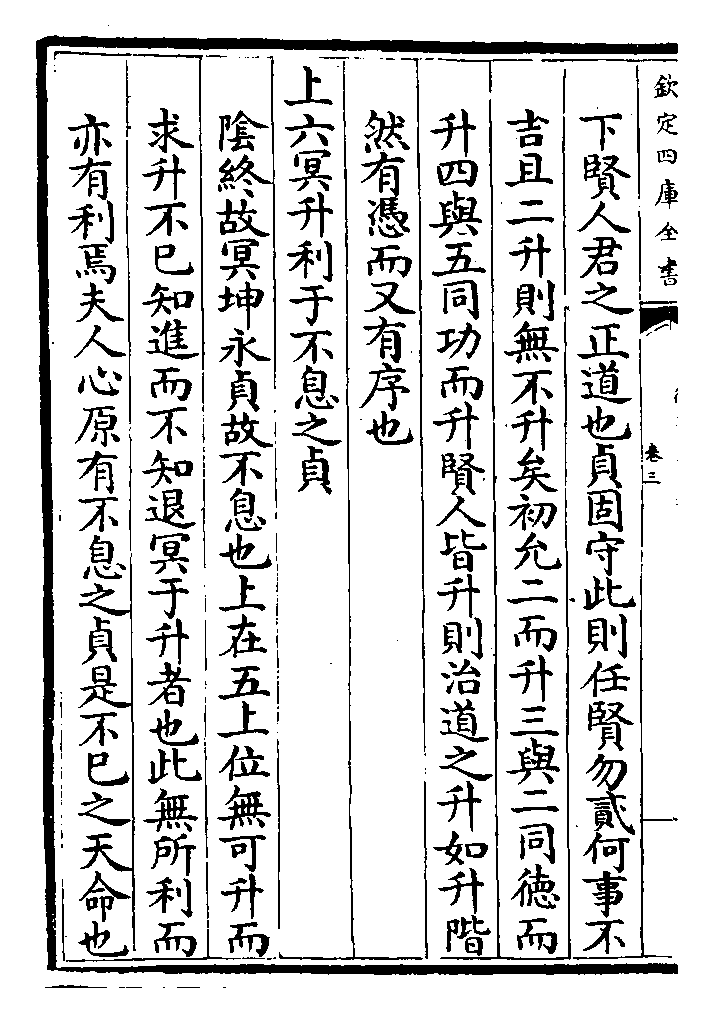 欽定四庫全書
卷三
下賢人君之正道也貞固守此則任賢勿貳何事不
吉且二升則無不升矣初允二而升三與二同德而
升四與五同功而升賢人皆升則治道之升如升階
然有憑而又有序也
上六冥升利于不息之貞
陰終故冥坤永貞故不息也上在五上位無可升而
求升不已知進而不知退冥于升者也此無所利而
亦有利焉夫人心原有不息之貞是不已之天命也